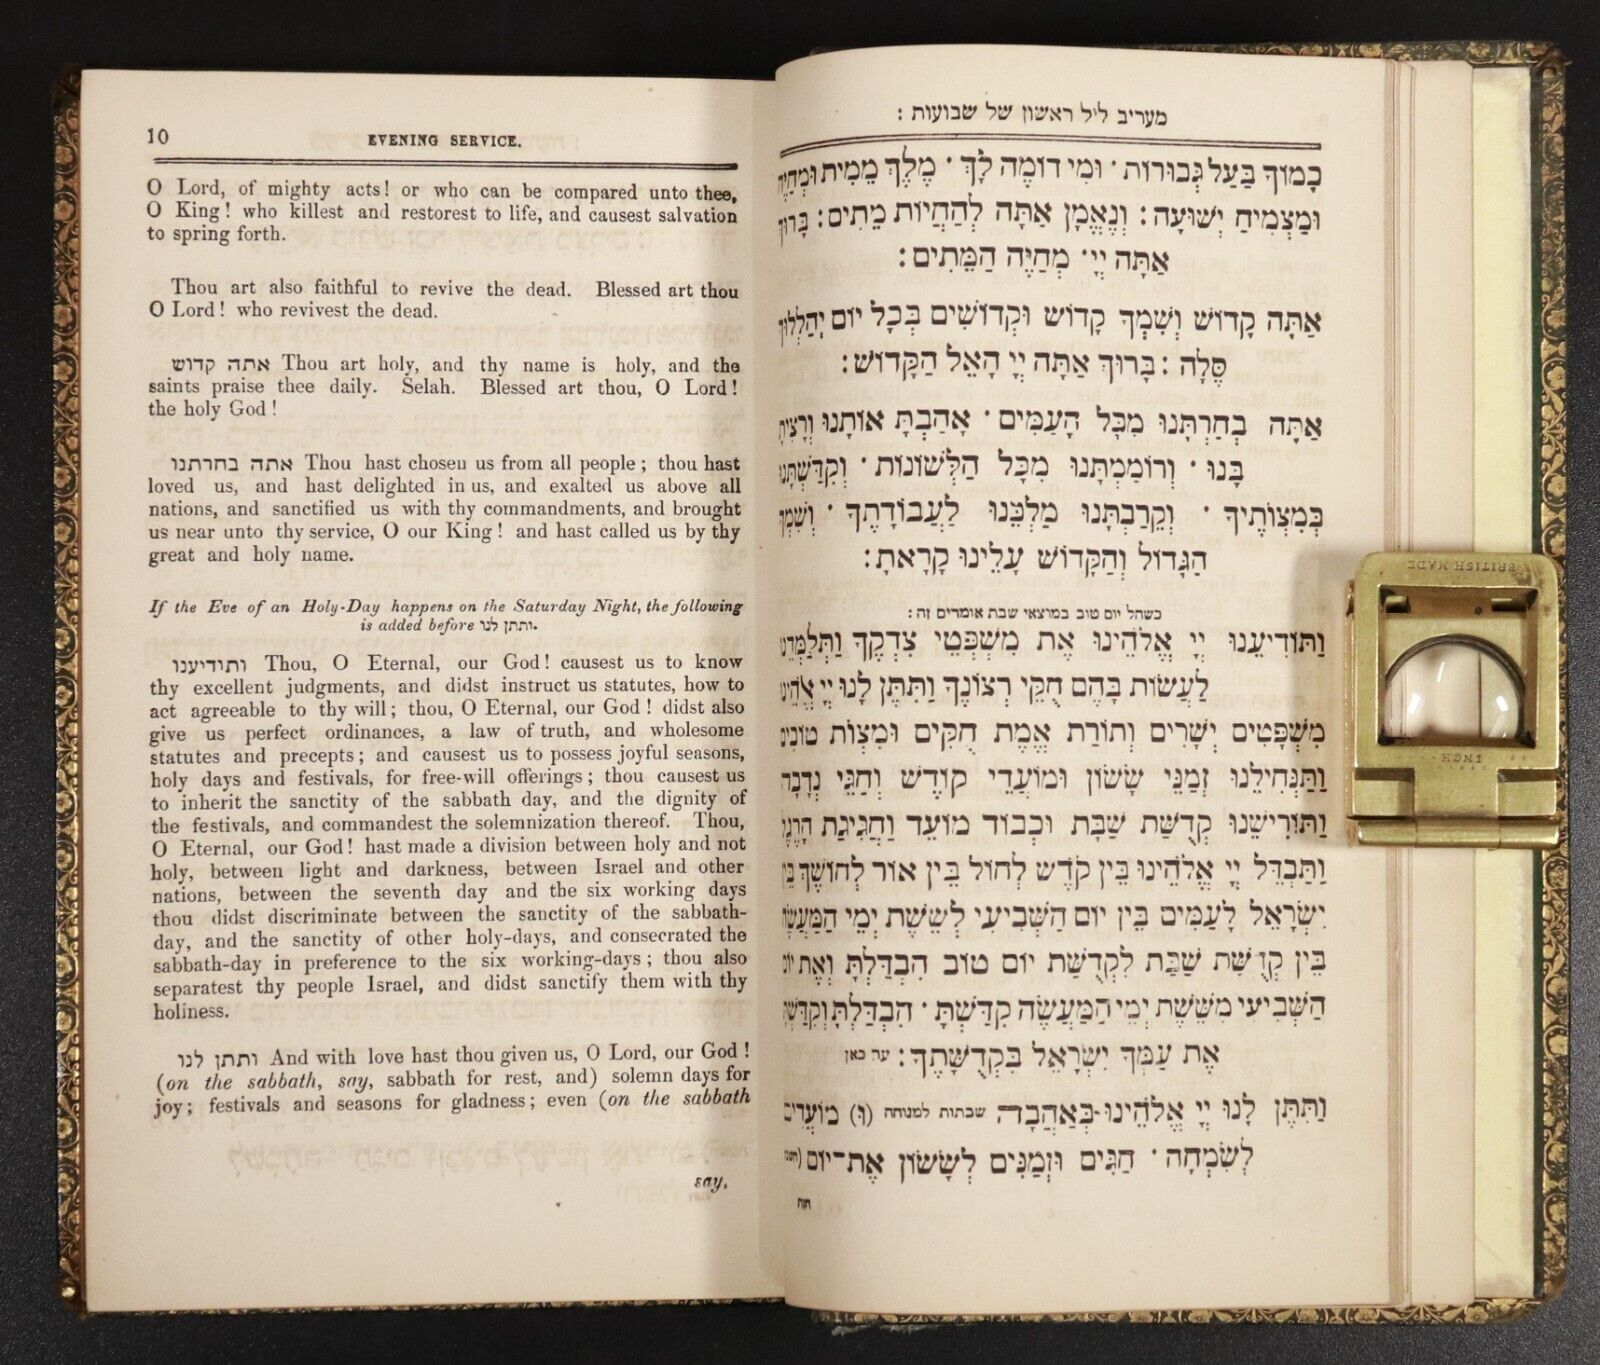 10 EVENING SERVICE.
O Lord, of mighty acts! or who can be compared unto thee,
O King! who killest and restorest to life, and causest salvation
to spring forth.
Thou art also faithful to revive the dead. Blessed art thou
O Lord! who revivest the dead.
אתה קדוש Thou art holy, and thy name is holy, and the
saints praise thee daily. Selah. Blessed art thou, O Lord!
the holy God!
אתה בחרתנו Thou hast chosen us from all people; thou hast
loved us, and hast delighted in us, and exalted us above all
nations, and sanctified us with thy commandments, and brought
us near unto thy service, O our King! and hast called us by thy
great and holy name.
If the Eve of an Holy-Day happens on the Saturday Night, the following
is added before ותתן לנו.
ותודיענו Thou, O Eternal, our God! causest us to know
thy excellent judgments, and didst instruct us statutes, how to
act agreeable to thy will; thou, O Eternal, our God! didst also
give us perfect ordinances, a law of truth, and wholesome
statutes and precepts; and causest us to possess joyful seasons,
holy days and festivals, for free-will offerings; thou causest us
to inherit the sanctity of the sabbath day, and the dignity of
the festivals, and commandest the solemnization thereof. Thou,
O Eternal, our God! hast made a division between holy and not
holy, between light and darkness, between Israel and other
nations, between the seventh day and the six working days
thou didst discriminate between the sanctity of the sabbath-
day, and the sanctity of other holy-days, and consecrated the
sabbath-day in preference to the six working-days; thou also
separatest thy people Israel, and didst sanctify them with thy
holiness.
ותתן לנו And with love hast thou given us, O Lord, our God!
(on the sabbath, say, sabbath for rest, and) solemn days for
joy; festivals and seasons for gladness; even (on the sabbath
say,
מעריב ליל ראשון של שבועות :
כָמוֹךָ בַּעַל גְּבוּרוֹת · וּמִי דוֹמֶה לָּךְ · מֶלֶךְ מֵמִית וּמְחַיֶּה
וּמַצְמִיחַ יְשׁוּעָה : וְנֶאֱמָן אַתָּה לְהַחֲיוֹת מֵתִים : בָּרוּךְ
אַתָּה יְיָ · מְחַיֵּה הַמֵּתִים :
אַתָּה קָדוֹשׁ וְשִׁמְךָ קָדוֹשׁ וּקְדוֹשִׁים בְּכָל יוֹם יְהַלְלוּךָ
סֶּלָה : בָּרוּךְ אַתָּה יְיָ הָאֵל הַקָּדוֹשׁ :
אַתָּה בְחַרְתָּנוּ מִכָּל הָעַמִּים · אָהַבְתָּ אוֹתָנוּ וְרָצִיתָ
בָּנוּ · וְרוֹמַמְתָּנוּ מִכָּל הַלְּשׁוֹנוֹת · וְקִדַּשְׁתָּנוּ
בְּמִצְוֹתֶיךָ · וְקֵרַבְתָּנוּ מַלְכֵּנוּ לַעֲבוֹדָתֶךָ · וְשִׁמְךָ
הַגָּדוֹל וְהַקָּדוֹשׁ עָלֵינוּ קָרָאתָ :
כשחל יום טוב במוצאי שבת אומרים זה :
וַתּוֹדִיעֵנוּ יְיָ אֱלֹהֵינוּ אֶת מִשְׁפְּטֵי צִדְקֶךָ וַתְּלַמְּדֵנוּ
לַעֲשׂוֹת בָּהֶם חֻקֵּי רְצוֹנֶךָ וַתִּתֶּן לָנוּ יְיָ אֱלֹהֵינוּ
מִשְׁפָּטִים יְשָׁרִים וְתוֹרַת אֱמֶת חֻקִּים וּמִצְוֹת טוֹבִים
וַתַּנְחִילֵנוּ זְמַנֵּי שָׂשׂוֹן וּמוֹעֲדֵי קוֹדֶשׁ וְחַגֵּי נְדָבָה
וַתּוֹרִישֵׁנוּ קְדֻשַּׁת שַׁבָּת וּכְבוֹד מוֹעֵד וַחֲגִיגַת הָרֶגֶל
וַתַּבְדֵּל יְיָ אֱלֹהֵינוּ בֵּין קֹדֶשׁ לְחוֹל בֵּין אוֹר לְחוֹשֶׁךְ בֵּין
יִשְׂרָאֵל לָעַמִּים בֵּין יוֹם הַשְּׁבִיעִי לְשֵׁשֶׁת יְמֵי הַמַּעֲשֶׂה
בֵּין קְדֻשַּׁת שַׁבָּת לִקְדֻשַּׁת יוֹם טוֹב הִבְדַּלְתָּ וְאֶת יוֹם
הַשְּׁבִיעִי מִשֵּׁשֶׁת יְמֵי הַמַּעֲשֶׂה קִדַּשְׁתָּ · הִבְדַּלְתָּ וְקִדַּשְׁתָּ
אֶת עַמְּךָ יִשְׂרָאֵל בִּקְדֻשָּׁתֶךָ : עד כאן
וַתִּתֶּן לָנוּ יְיָ אֱלֹהֵינוּ בְּאַהֲבָה שבתות למנוחה (וּ) מוֹעֲדִים
לְשִׂמְחָה · חַגִּים וּזְמַנִּים לְשָׂשׂוֹן אֶת־יוֹם
BRITISH MADE
INCH